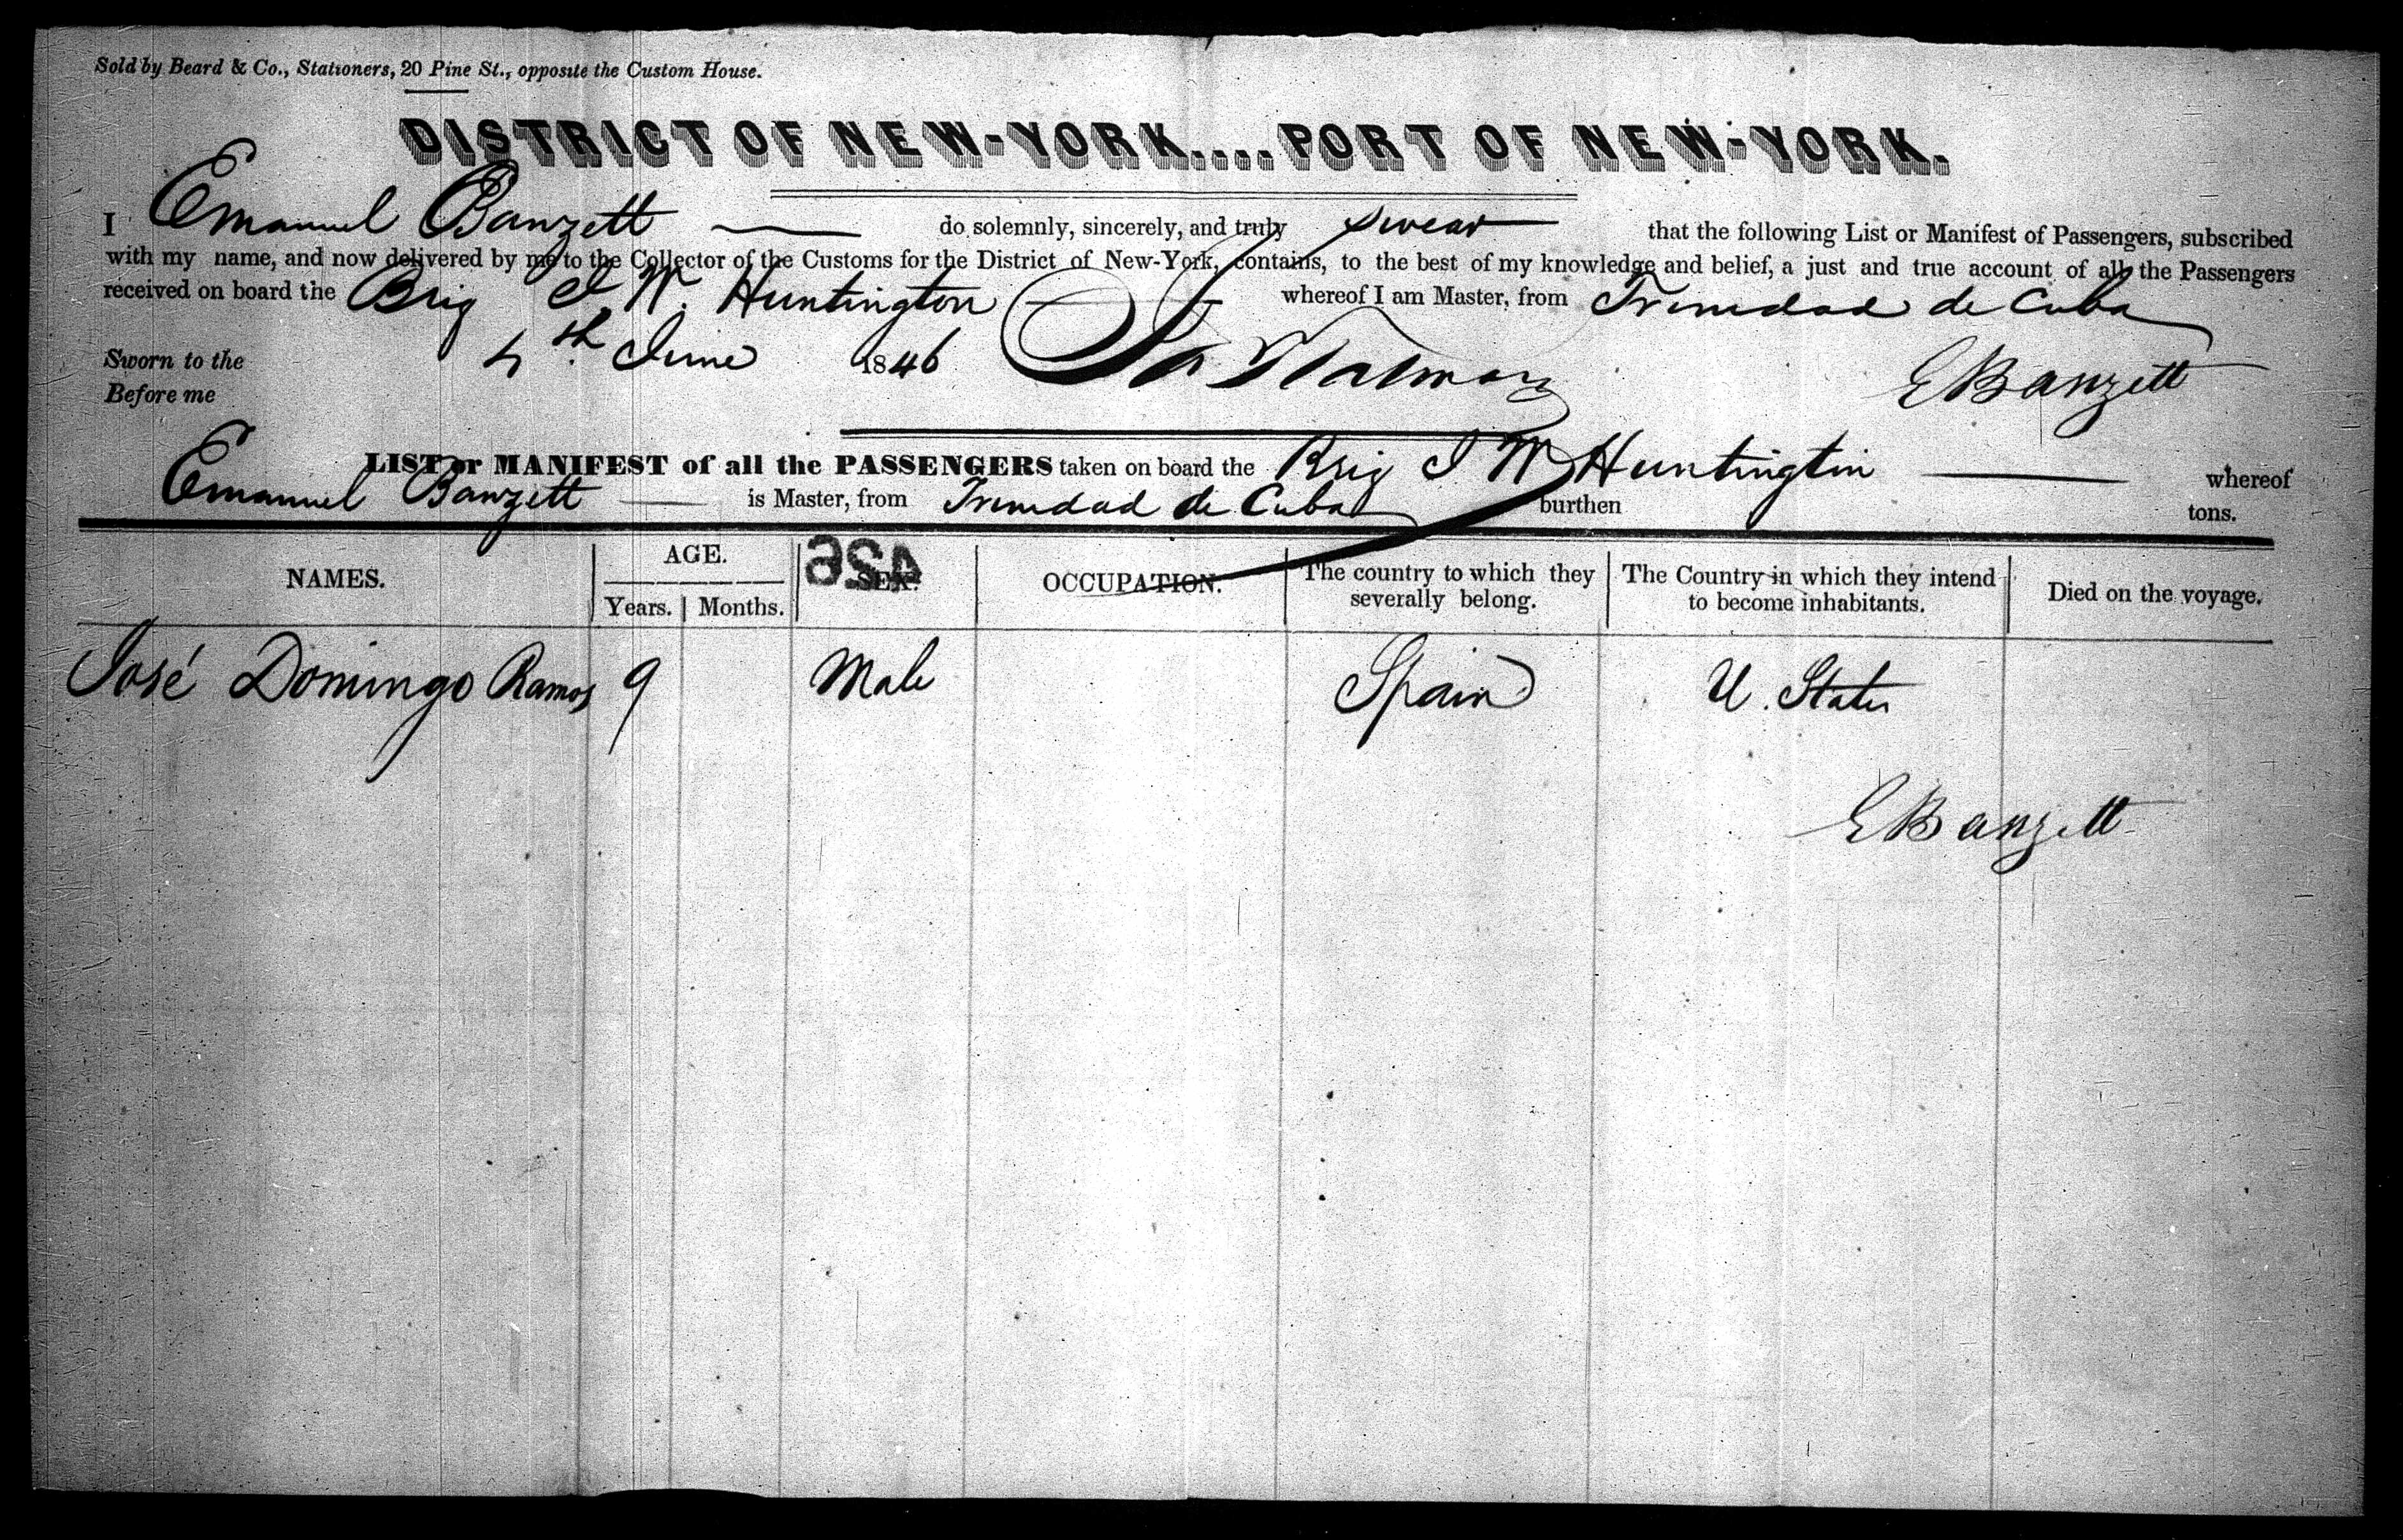 Sold by Beard & Co., Stationers, 20 Pine St., opposite the Custom House.
DISTRICT OF NEW-YORK....PORT OF NEW-YORK.
I Emanuel Banzett do solemnly, sincerely, and truly swear that the following List or Manifest of Passengers, subscribed
with my name, and now delivered by me to the Collector of the Customs for the District of New-York, contains, to the best of my knowledge and belief, a just and true account of all the Passengers
received on board the Brig I W. Huntington whereof I am Master, from Trinidad de Cuba
Sworn to the 4th June 1846
Before me
E Banzett
LIST or MANIFEST of all the PASSENGERS taken on board the Brig I W Huntington whereof
Emanuel Banzett is Master, from Trinidad de Cuba burthen tons.
NAMES. AGE. Years. Months. SEX. OCCUPATION. The country to which they severally belong. The Country in which they intend to become inhabitants. Died on the voyage.
426
José Domingo Ramos 9 Male Spain U. States
E Banzett